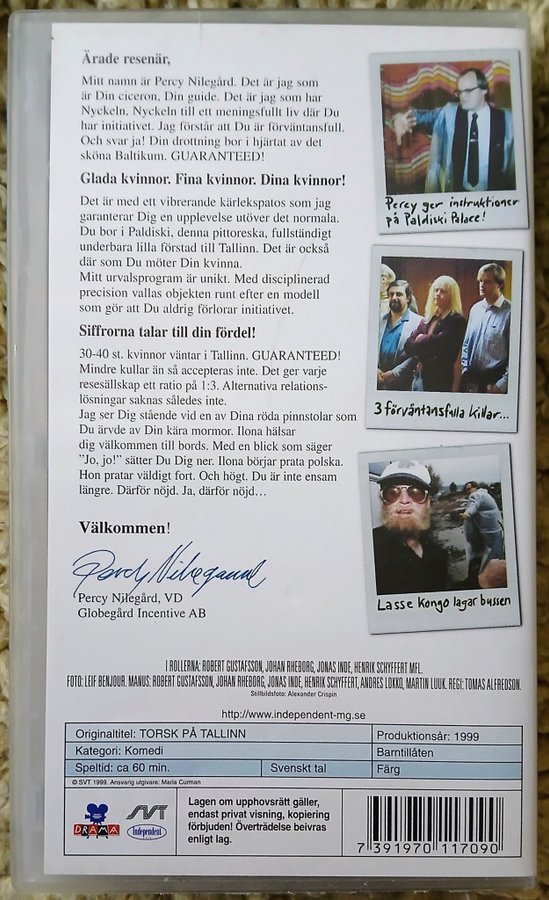 Ärade resenär,
Mitt namn är Percy Nilegård. Det är jag som
är Din ciceron, Din guide. Det är jag som har
Nyckeln. Nyckeln till ett meningsfullt liv där Du
har initiativet. Jag förstår att Du är förväntansfull.
Och svar ja! Din drottning bor i hjärtat av det
sköna Baltikum. GUARANTEED!
Glada kvinnor. Fina kvinnor. Dina kvinnor!
Det är med ett vibrerande kärlekspatos som jag
garanterar Dig en upplevelse utöver det normala.
Du bor i Paldiski, denna pittoreska, fullständigt
underbara lilla förstad till Tallinn. Det är också
där som Du möter Din kvinna.
Mitt urvalsprogram är unikt. Med disciplinerad
precision vallas objekten runt efter en modell
som gör att Du aldrig förlorar initiativet.
Siffrorna talar till din fördel!
30-40 st. kvinnor väntar i Tallinn. GUARANTEED!
Mindre kullar än så accepteras inte. Det ger varje
resesällskap ett ratio på 1:3. Alternativa relations-
lösningar saknas således inte.
Jag ser Dig stående vid en av Dina röda pinnstolar som
Du ärvde av Din kära mormor. Ilona hälsar
dig välkommen till bords. Med en blick som säger
"Jo, jo!" sätter Du Dig ner. Ilona börjar prata polska.
Hon pratar väldigt fort. Och högt. Du är inte ensam
längre. Därför nöjd. Ja, därför nöjd…
Välkommen!
Percy Nilegård
Percy Nilegård, VD
Globegård Incentive AB
Percy ger instruktioner
på Paldiski Palace!
3 förväntansfulla killar...
Lasse Kongo lagar bussen
I ROLLERNA: ROBERT GUSTAFSSON, JOHAN RHEBORG, JONAS INDE, HENRIK SCHYFFERT MFL.
FOTO: LEIF BENJOUR. MANUS: ROBERT GUSTAFSSON, JOHAN RHEBORG, JONAS INDE, HENRIK SCHYFFERT, ANDRES LOKKO, MARTIN LUUK. REGI: TOMAS ALFREDSON.
Stillbildsfoto: Alexander Crispin
http://www.independent-mg.se
Originaltitel: TORSK PÅ TALLINN
Produktionsår: 1999
Kategori: Komedi
Barntillåten
Speltid: ca 60 min.
Svenskt tal
Färg
© SVT 1999. Ansvarig utgivare: Maria Curman
DRAMA
SVT
Independent
Lagen om upphovsrätt gäller,
endast privat visning, kopiering
förbjuden! Överträdelse beivras
enligt lag.
7 391970 117090